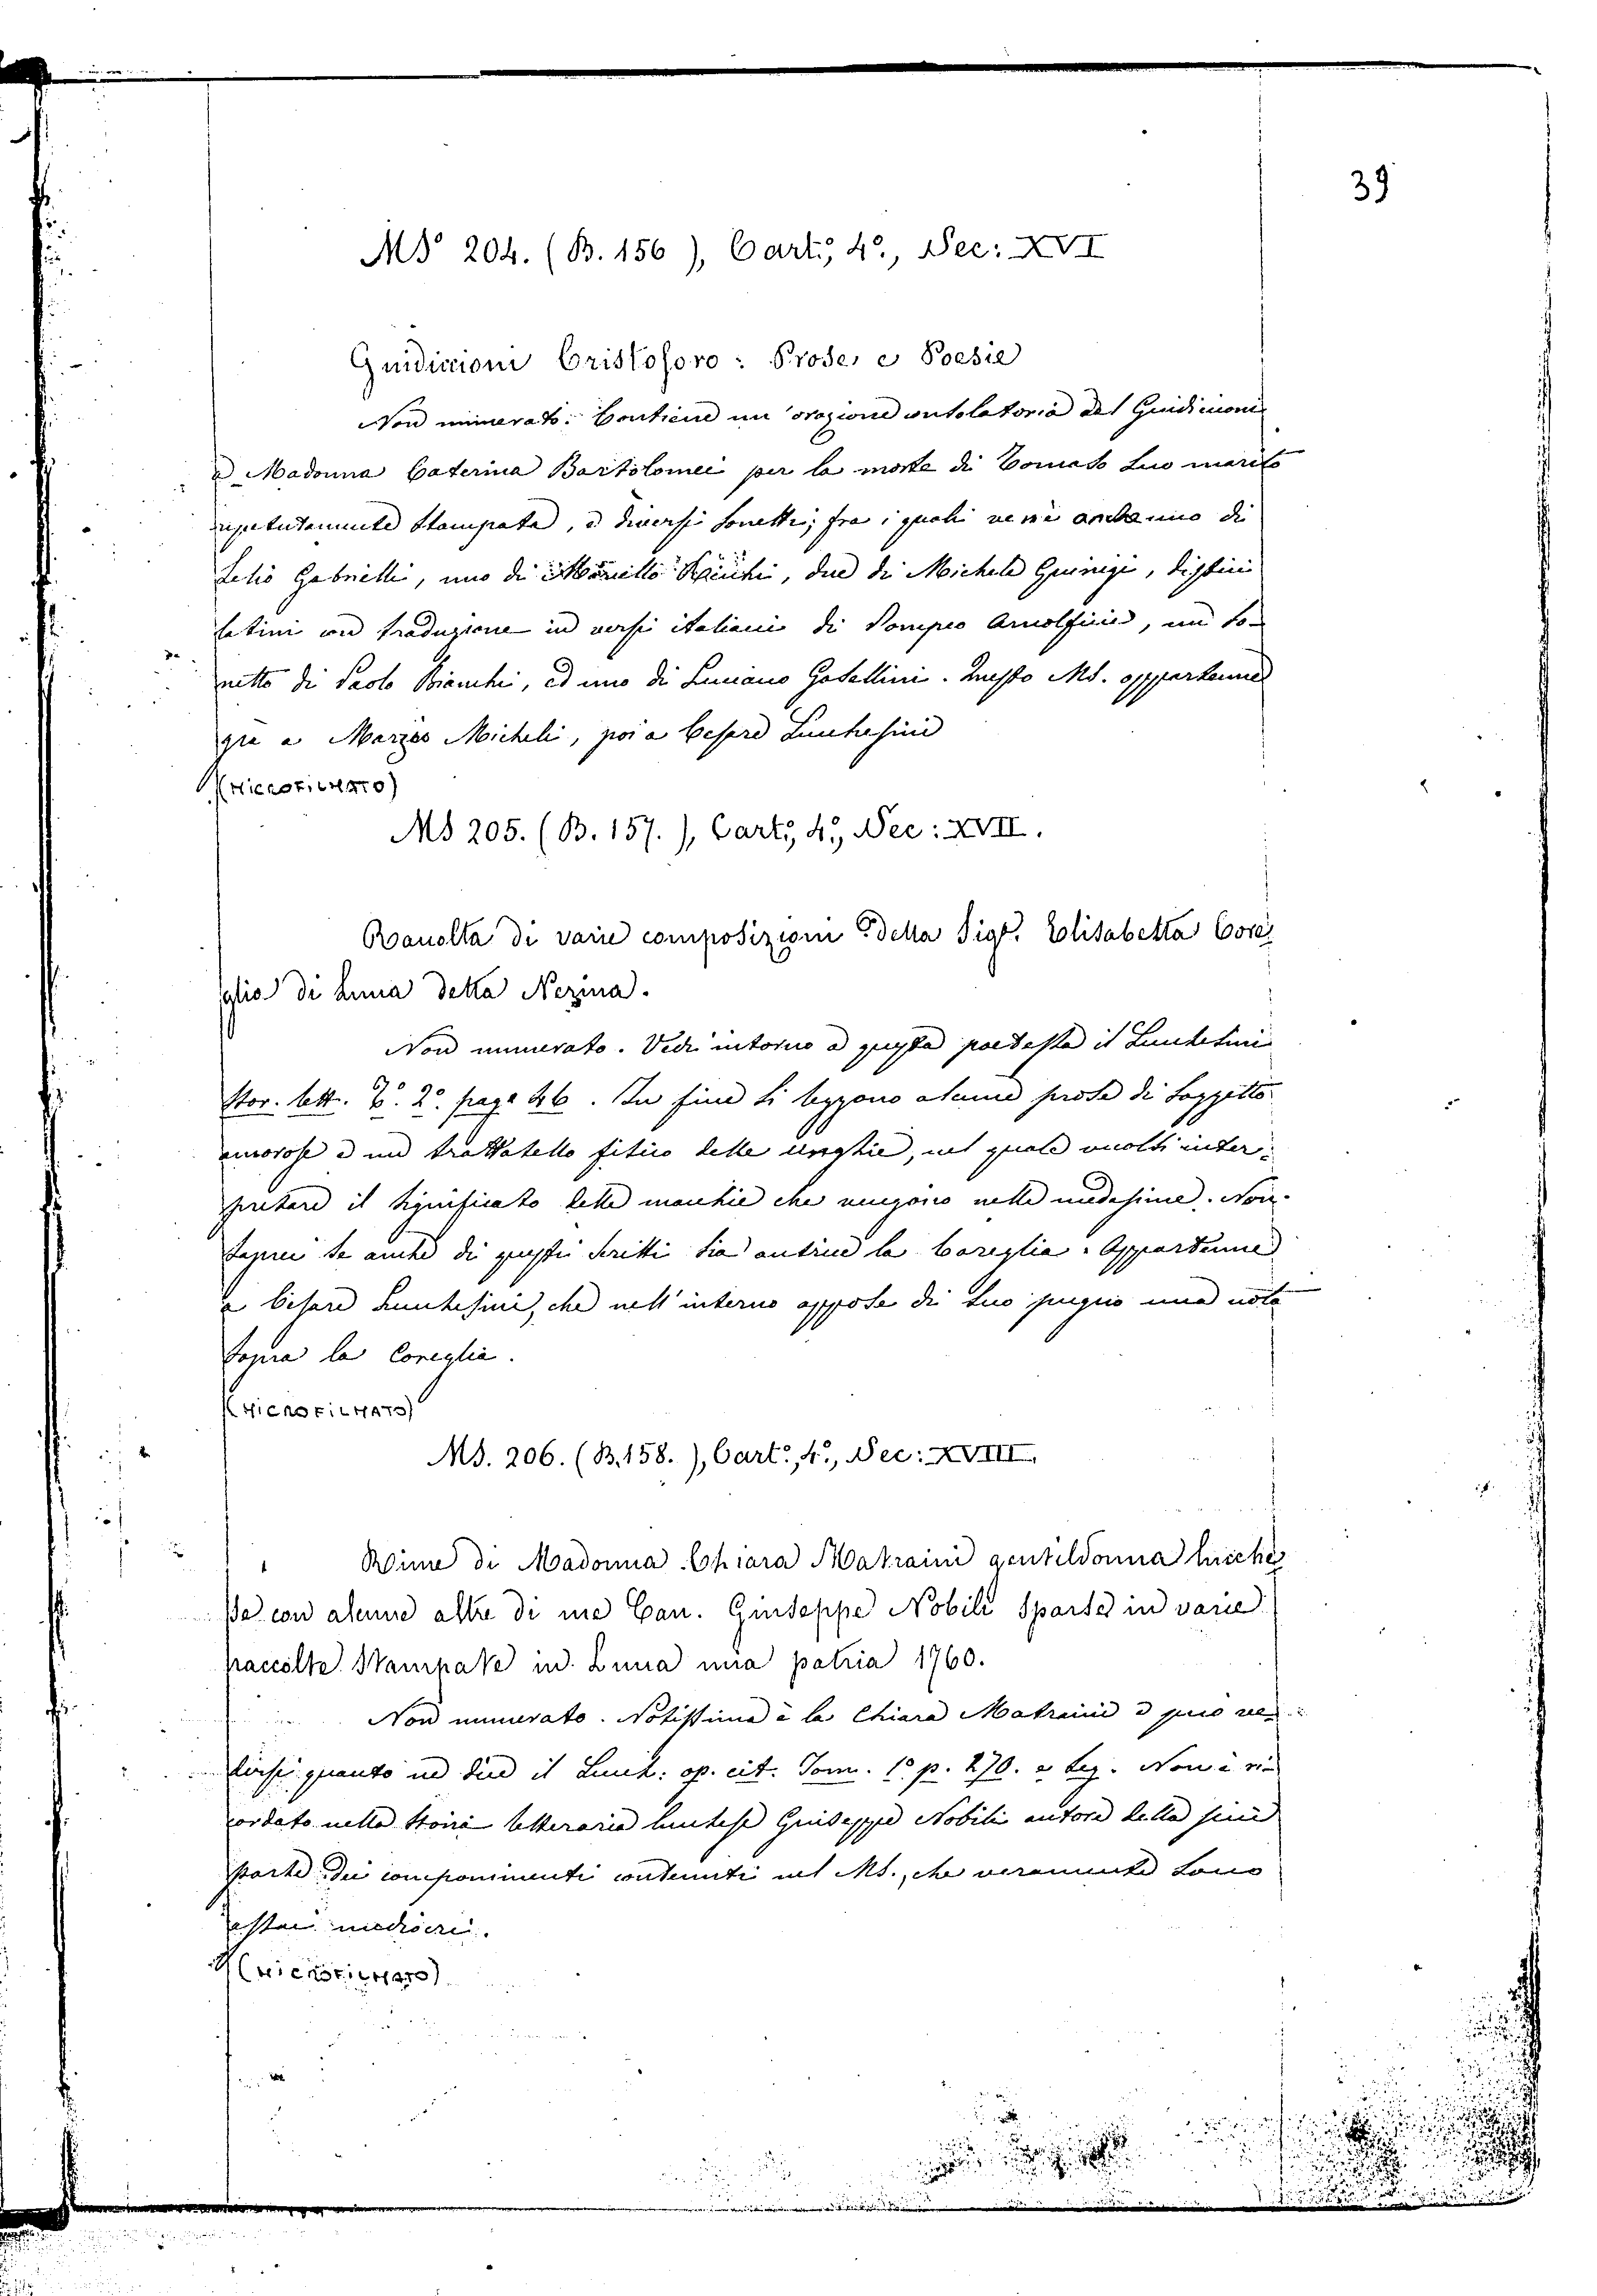 39
MS 204. (B. 156), Cart:, 4º, Sec: XVI
Guidiccioni Cristoforo: Prose, e Poesie
Non numerato. Contiene un'orazione consolatoria del Guidiccioni
a Madonna Caterina Bartolomei per la morte di Tomaso suo marito
ripetutamente stampata, e diversi sonetti; fra i quali ve ne anche uno di
Lelio Gabrielli, uno di, due di Michele Guinigi, distici
latini con traduzione in versi italiani di Pompeo Arnolfini, un so-
netto di Paolo Bianchi, ed uno di Luciano Gosellini. Questo Ms. appartenne
gia a Marzio Micheli, poi a Cesare Lucchesini
(MICROFILMATO)
MS 205. (B. 157.), Cart:, 4º, Sec: XVII.
Raccolta di varie composizioni della Sigª. Elisabetta Core-
glia di Lucca detta Nerina.
Non numerato. Vedi intorno a questa poetessa il Lucchesini
Stor. lett. T. 2º pag. 46. In fine si leggono alcune prose di soggetto
amoroso e un trattatello fisico delle unghie, nel quale vuolsi inter-
pretare il significato delle macchie che vengono nelle medesime. Non
saprei se anche di questi scritti sia autrice la Coreglia. Appartenne
a Cesare Lucchesini, che nell'interno appose di suo pugno una nota
sopra la Coreglia.
(MICROFILMATO)
MS. 206. (B. 158.), Cart:, 4º, Sec: XVIII.
Rime di Madonna Chiara Matraini gentildonna lucche-
se con alcune altre di me Can. Giuseppe Nobili sparse in varie
raccolte stampate in Lucca mia patria 1760.
Non numerato. Notissima è la Chiara Matraini e può ve-
dersi quanto ne dice il Lucch: op. cit. Tom. 1º p. 270. e seg. Non è ri-
cordato nella Storia letteraria lucchese Giuseppe Nobili autore della
parte dei componimenti contenuti nel Ms., che veramente sono
assai mediocri.
(MICROFILMATO)